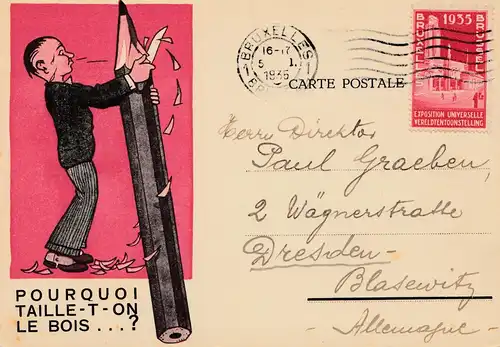 POURQUOI
TAILLE-T-ON
LE BOIS . . . ?
BRUXELLES
16-17
1935
CARTE POSTALE
1935
BRUXELLES
BRUSSEL
EXPOSITION UNIVERSELLE
WERELDTENTOONSTELLING
Herrn Direktor
Paul Graeben,
2 Wägnerstratte
Dresden-
Blasewitz
- Allemagne -